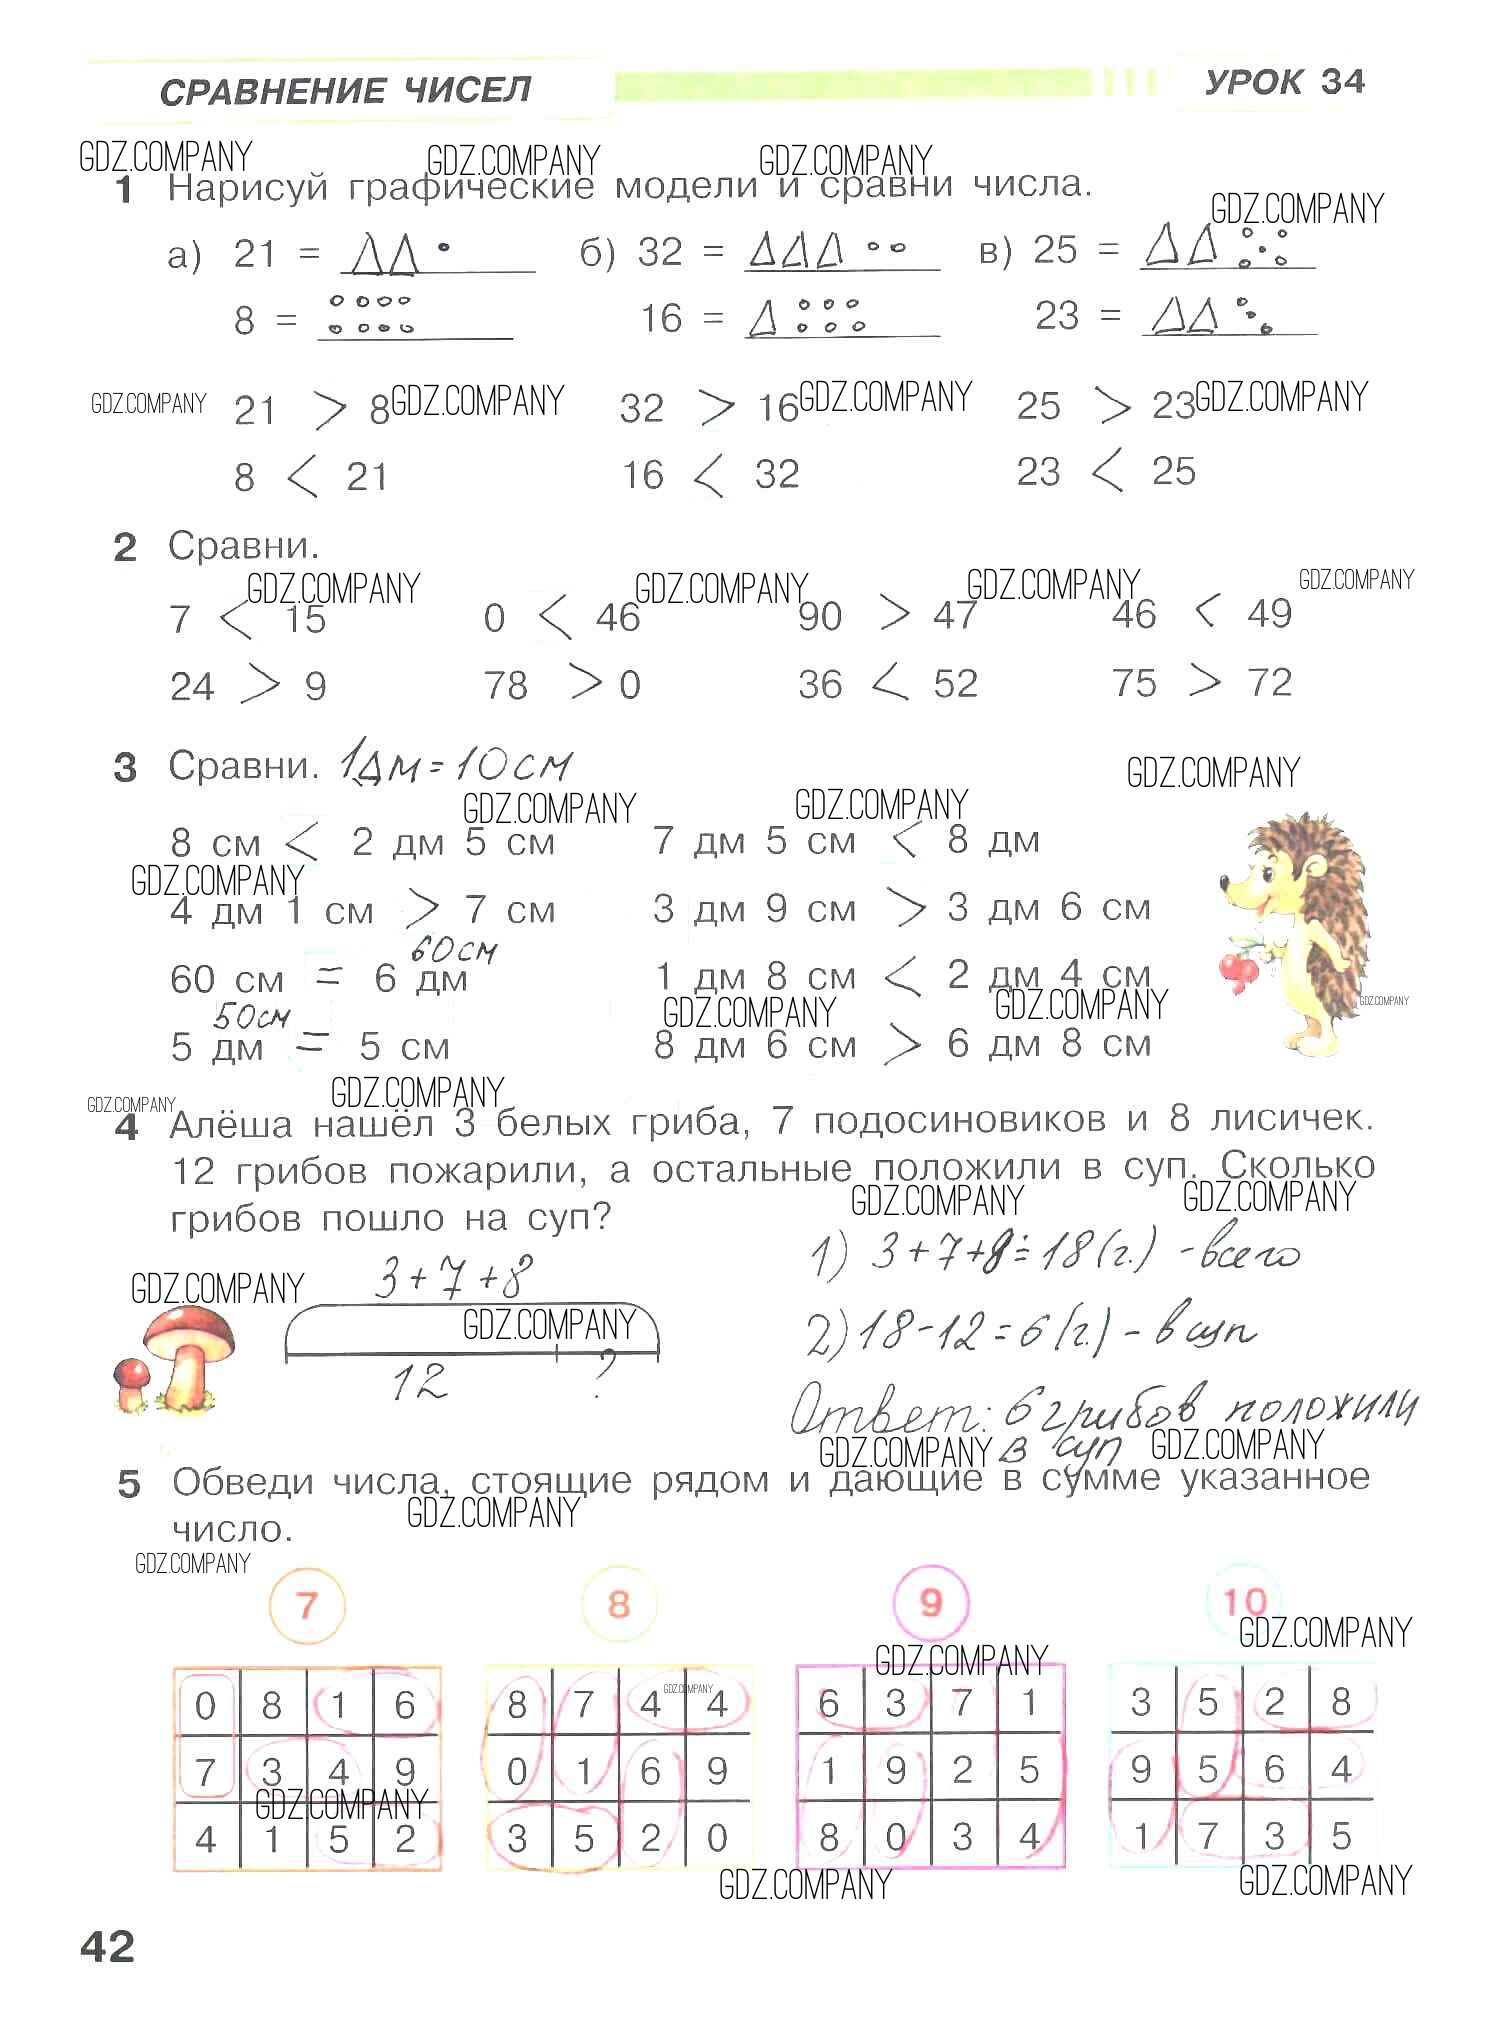 СРАВНЕНИЕ ЧИСЕЛ УРОК 34
GDZ.COMPANY GDZ.COMPANY GDZ.COMPANY
1 Нарисуй графические модели и сравни числа.
GDZ.COMPANY
а) 21 = б) 32 = в) 25 =
8 = 16 = 23 =
GDZ.COMPANY 21 > 8 GDZ.COMPANY 32 > 16 GDZ.COMPANY 25 > 23 GDZ.COMPANY
8 < 21 16 < 32 23 < 25
2 Сравни.
GDZ.COMPANY GDZ.COMPANY GDZ.COMPANY GDZ.COMPANY
7 < 15 0 < 46 90 > 47 46 < 49
24 > 9 78 > 0 36 < 52 75 > 72
3 Сравни. 1дм = 10см
GDZ.COMPANY
GDZ.COMPANY GDZ.COMPANY
8 см < 2 дм 5 см 7 дм 5 см < 8 дм
GDZ.COMPANY
4 дм 1 см > 7 см 3 дм 9 см > 3 дм 6 см
60см
60 см = 6 дм 1 дм 8 см < 2 дм 4 см
GDZ.COMPANY GDZ.COMPANY GDZ.COMPANY
50см
5 дм = 5 см 8 дм 6 см > 6 дм 8 см
GDZ.COMPANY GDZ.COMPANY
4 Алёша нашёл 3 белых гриба, 7 подосиновиков и 8 лисичек.
12 грибов пожарили, а остальные положили в суп. Сколько
GDZ.COMPANY GDZ.COMPANY
грибов пошло на суп?
1) 3+7+8=18(г.) - всего
3+7+8
GDZ.COMPANY GDZ.COMPANY
2) 18-12=6(г.) - в суп
12 ?
Ответ: 6 грибов положили
в суп
GDZ.COMPANY GDZ.COMPANY
5 Обведи числа, стоящие рядом и дающие в сумме указанное
GDZ.COMPANY
число.
GDZ.COMPANY
7 8 9 10
GDZ.COMPANY GDZ.COMPANY GDZ.COMPANY
0 8 1 6 8 7 4 4 6 3 7 1 3 5 2 8
7 3 4 9 0 1 6 9 1 9 2 5 9 5 6 4
GDZ.COMPANY
4 1 5 2 3 5 2 0 8 0 3 4 1 7 3 5
GDZ.COMPANY GDZ.COMPANY
42